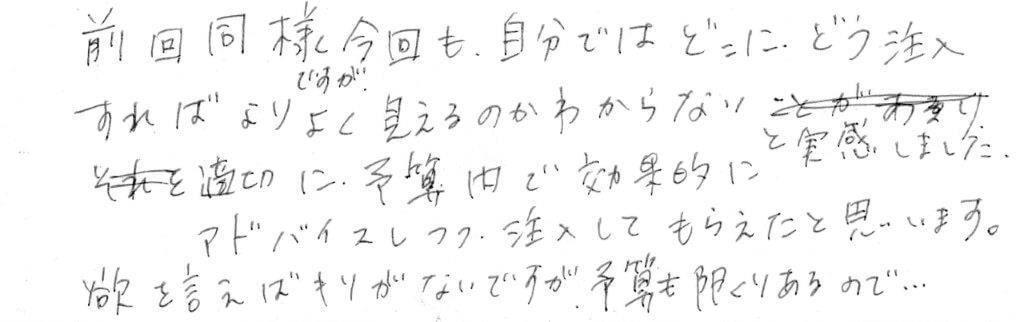 前回同様今回も、自分ではどこに、どう注入
ですが、
すればよりよく見えるのかわからない ことがあまり
と実感しました。
それを適切に、予算内で効果的に
アドバイスしつつ、注入してもらえたと思います。
欲を言えばきりがないですが、予算も限りあるので…